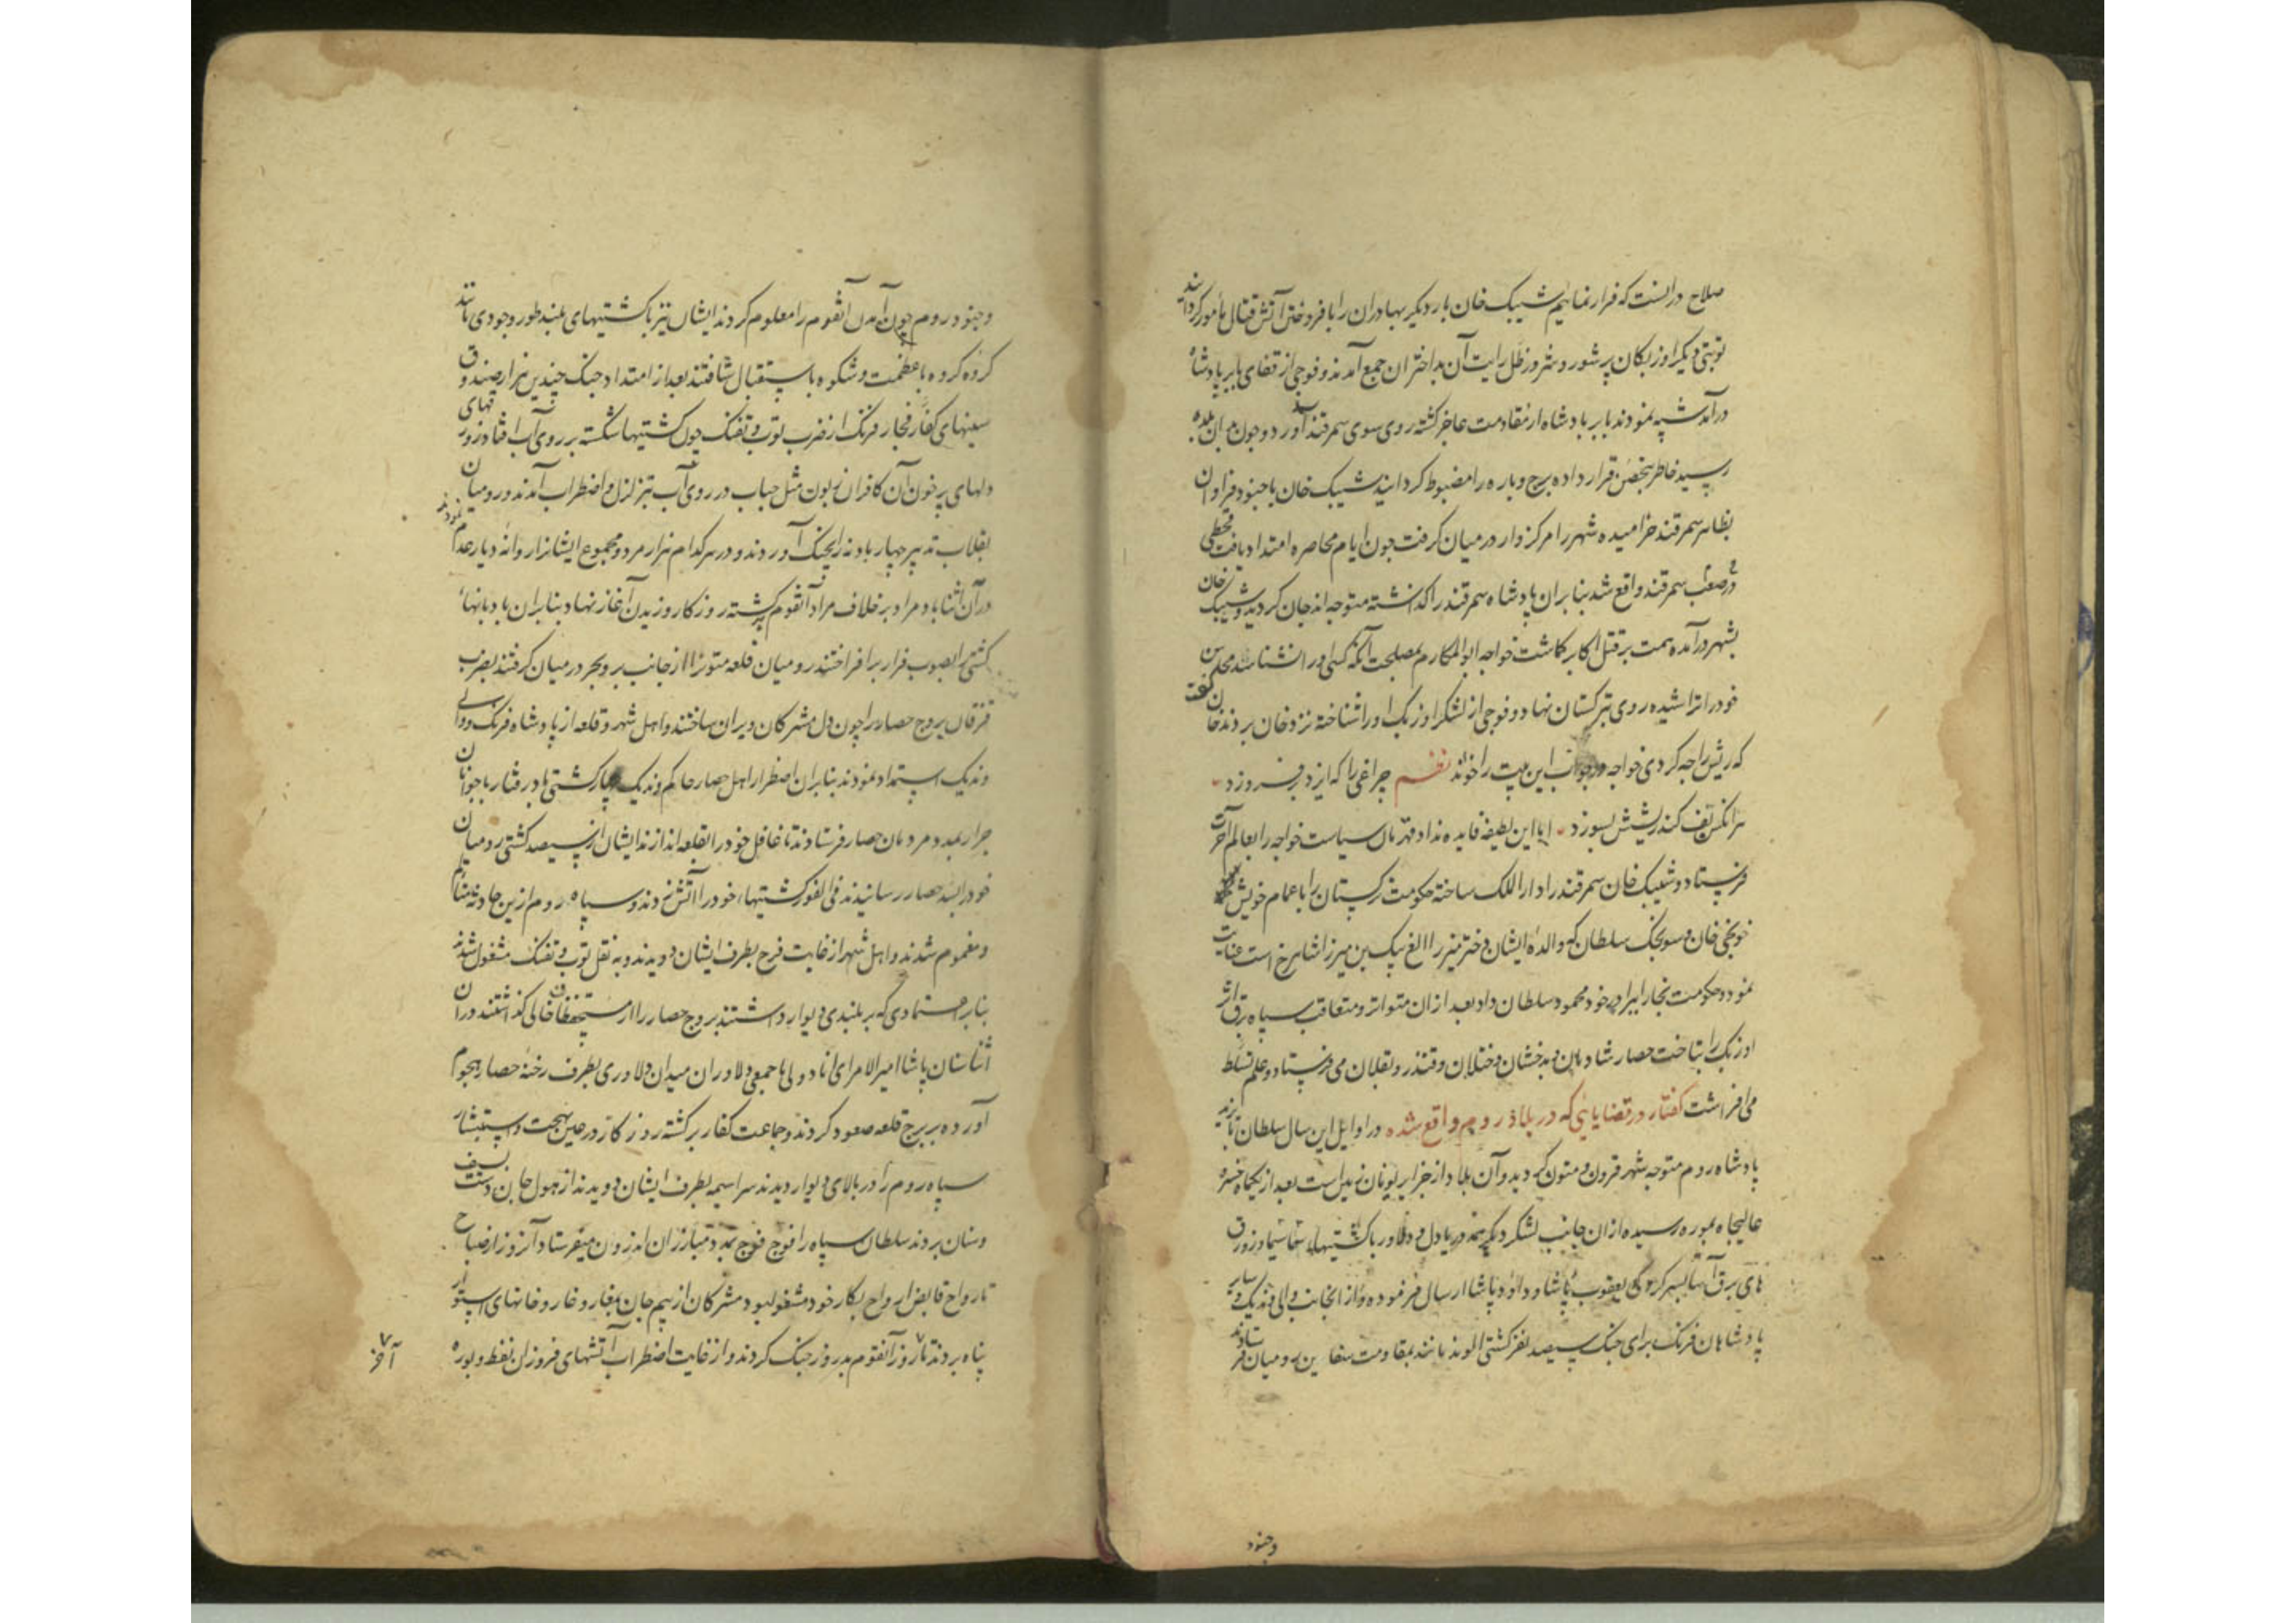 صلاح در انست که فرار نمائیم شیبک خان بار دیکر بهادران را بافروختن آتش قتال مأمور کردانید
نوبتی دیکر اوزبکان پر شور و شر در ظل رایت آن بداختران جمع آمدند و فوجی از قفای بابر پادشاه
درآمده شیبه نمودند بابر پادشاه از مقاومت عاجز کشته روی سوی سمرقند آورد و چون بدان بلده
رسید خاطر بتحصن قرار داده برج و باره را مضبوط کردانید شیبک خان با جنود فراوان
بظاهر سمرقند خرامیده شهر را مرکزوار در میان کرفت چون ایام محاصره امتداد یافت قحطی
صعب در سمرقند واقع شد بنابران پادشاه سمرقند را کذاشته متوجه اندجان کردید و شیبک خان
بشهر درآمده همت بر قتل اکابر کماشت خواجه ابوالمکارم بمصلحت آنکه کسی او را نشناسد محاسن
خود را تراشیده روی بترکستان نهاد و فوجی از لشکر اوزبک او را شناخته نزد خان بردند خان کفت
که ریش را چه کردی خواجه در جواب این بیت را خواند نظم چراغی را که ایزد برفروزد
هر انکس تف کند ریشش بسوزد اما این لطیفه فایده نداد قهرمان سیاست خواجه را بعالم آخرت
فرستاد و شیبک خان سمرقند را دار الملک ساخته حکومت ترکستان را باعمام خویش
کوچکنجی خان و سونجک سلطان که والده ایشان دختر میرزا الغ بیک بن میرزا شاهرخ است عنایت
نمود و حکومت بخارا ببرادر خود محمود سلطان داد بعد از ان متواتر و متعاقب سپاه برق اثر
اوزبک را بتاخت حصار شادمان و بدخشان و ختلان و قندز و بقلان می فرستاد و علم تسلط
می افراشت کفتار در قضایایی که در بلاد روم واقع شده در اوایل این سال سلطان بایزید
پادشاه روم متوجه شهر قرون و متون کردید و آن بلاد از جزایر یونان زمین است بعد از یکماه خسرو
عالیجاه بموره رسیده از ان جانب لشکر دیکر همه دریادل و دلاور با کشتیهای و زورق
های برق آسا بسرکردکی یعقوب پاشا و داود پاشا ارسال فرموده و از انجانب والی وندیک و سایر
پادشاهان فرنک برای جنک سیصد نفر کشتی الوند مانند بمقاومت سفاین رومیان فرستادند
وجنود
وجنود روم چون آمدن آنقوم را معلوم کردند ایشان نیز با کشتیهای بلند طور وجودی مانند
کروه کروه با عظمت و شکوه باستقبال شتافتند بعد از امتداد جنک چندین هزار صندوقهای
سینهای کفار فجار فرنک از ضرب توپ و تفنک چون کشتیها شکسته بر روی آب افتاد و زورق
دلهای پر خون آن کافران زبون مثل حباب در روی آب بتزلزل و اضطراب آمدند و رومیان
بقلاب تدبیر چهار بادنه را بچنک آوردند و در هر کدام هزار مرد و مجموع ایشانرا روانه دیار عدم نمودند
در آن اثنا باد مراد بر خلاف مراد آنقوم برکشته روزکار وزیدن آغاز نهاد بنابران بادبانهای
کشتی را بصوب فرار برافراختند رومیان قلعه متون را از جانب بر و بحر در میان کرفتند بضرب
قزقان بروج حصار را چون دل مشرکان ویران ساختند و اهل شهر و قلعه از پادشاه فرنک و والی
وندیک استمداد نمودند بنابران اضطرار اهل حصار حاکم وندیک چهار کشتی بادرفتار با جوانان
جرار بمدد مردمان حصار فرستادند تا غافل خود را بقلعه اندازند ایشان از سیصد کشتی رومیان
خود را بسد حصار رسانیدند فی الفور کشتیهای خود را آتش زدند و سپاه روم ازین حادثه متألم
ومغموم شدند و اهل شهر از غایت فرح بطرف ایشان دویدند و به نقل توپ و تفنک مشغول شدند
بنابر اعتمادی که بر بلندی دیوار داشتند بروج حصار را از مستحفظان خالی کذاشتند در ان
اثنا سنان پاشا امیر الامرای اناطولی با جمعی دلاوران میدان دلاوری بطرف رخنه حصار هجوم
آورده بر برج قلعه صعود کردند و جماعت کفار برکشته روزکار در عین بهجت و استبشار
سپاه روم را در بالای دیوار دیدند سراسیمه بطرف ایشان دویدند از هول جان دست بسیف
وسنان بردند سلطان سپاه را فوج فوج بمدد مبارزان اندرون میفرستاد آنروز از صباح
تا رواح قابض ارواح بکار خود مشغول بود مشرکان از بیم جان بغار و خانهای استوار
پناه بردند تا ۷ روز آنقوم بدروز جنک کردند و از غایت اضطراب آتشهای فروزان نفط و بوره
آخر